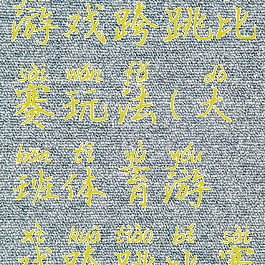 游戏跨跳比
sài wán fǎ dà
赛玩法(大
bān tǐ yù yóu
班体育游
xì kuà tiào bǐ sài
戏跨跳比赛